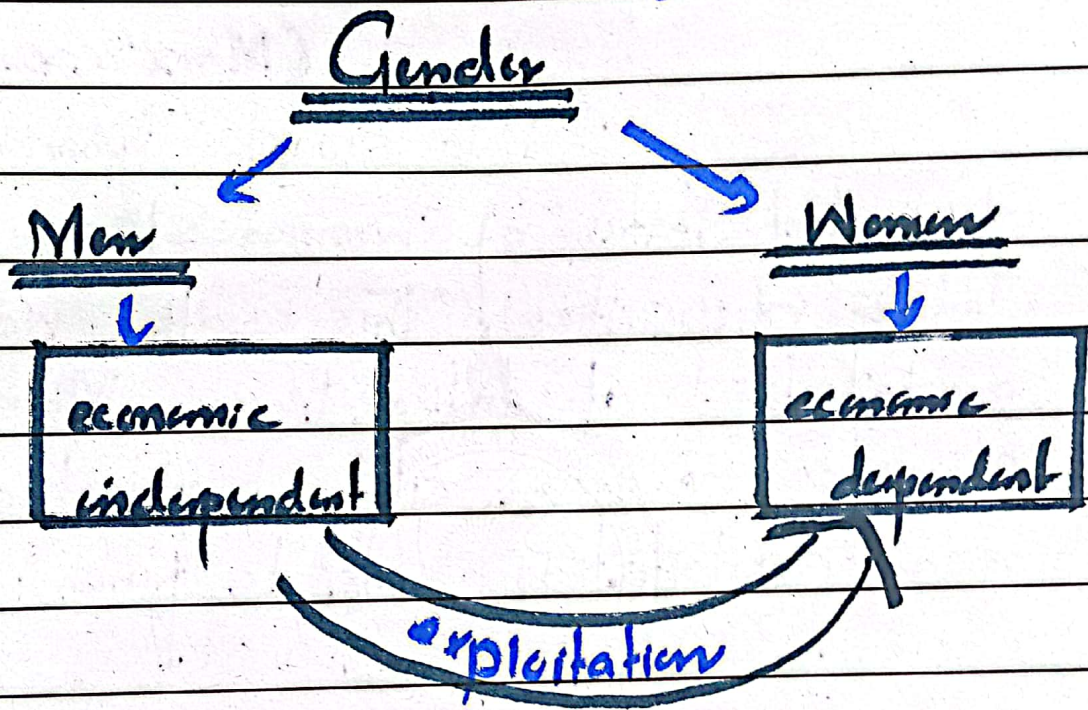 Gender
Men
Women
economic
independent
economic
dependent
exploitation